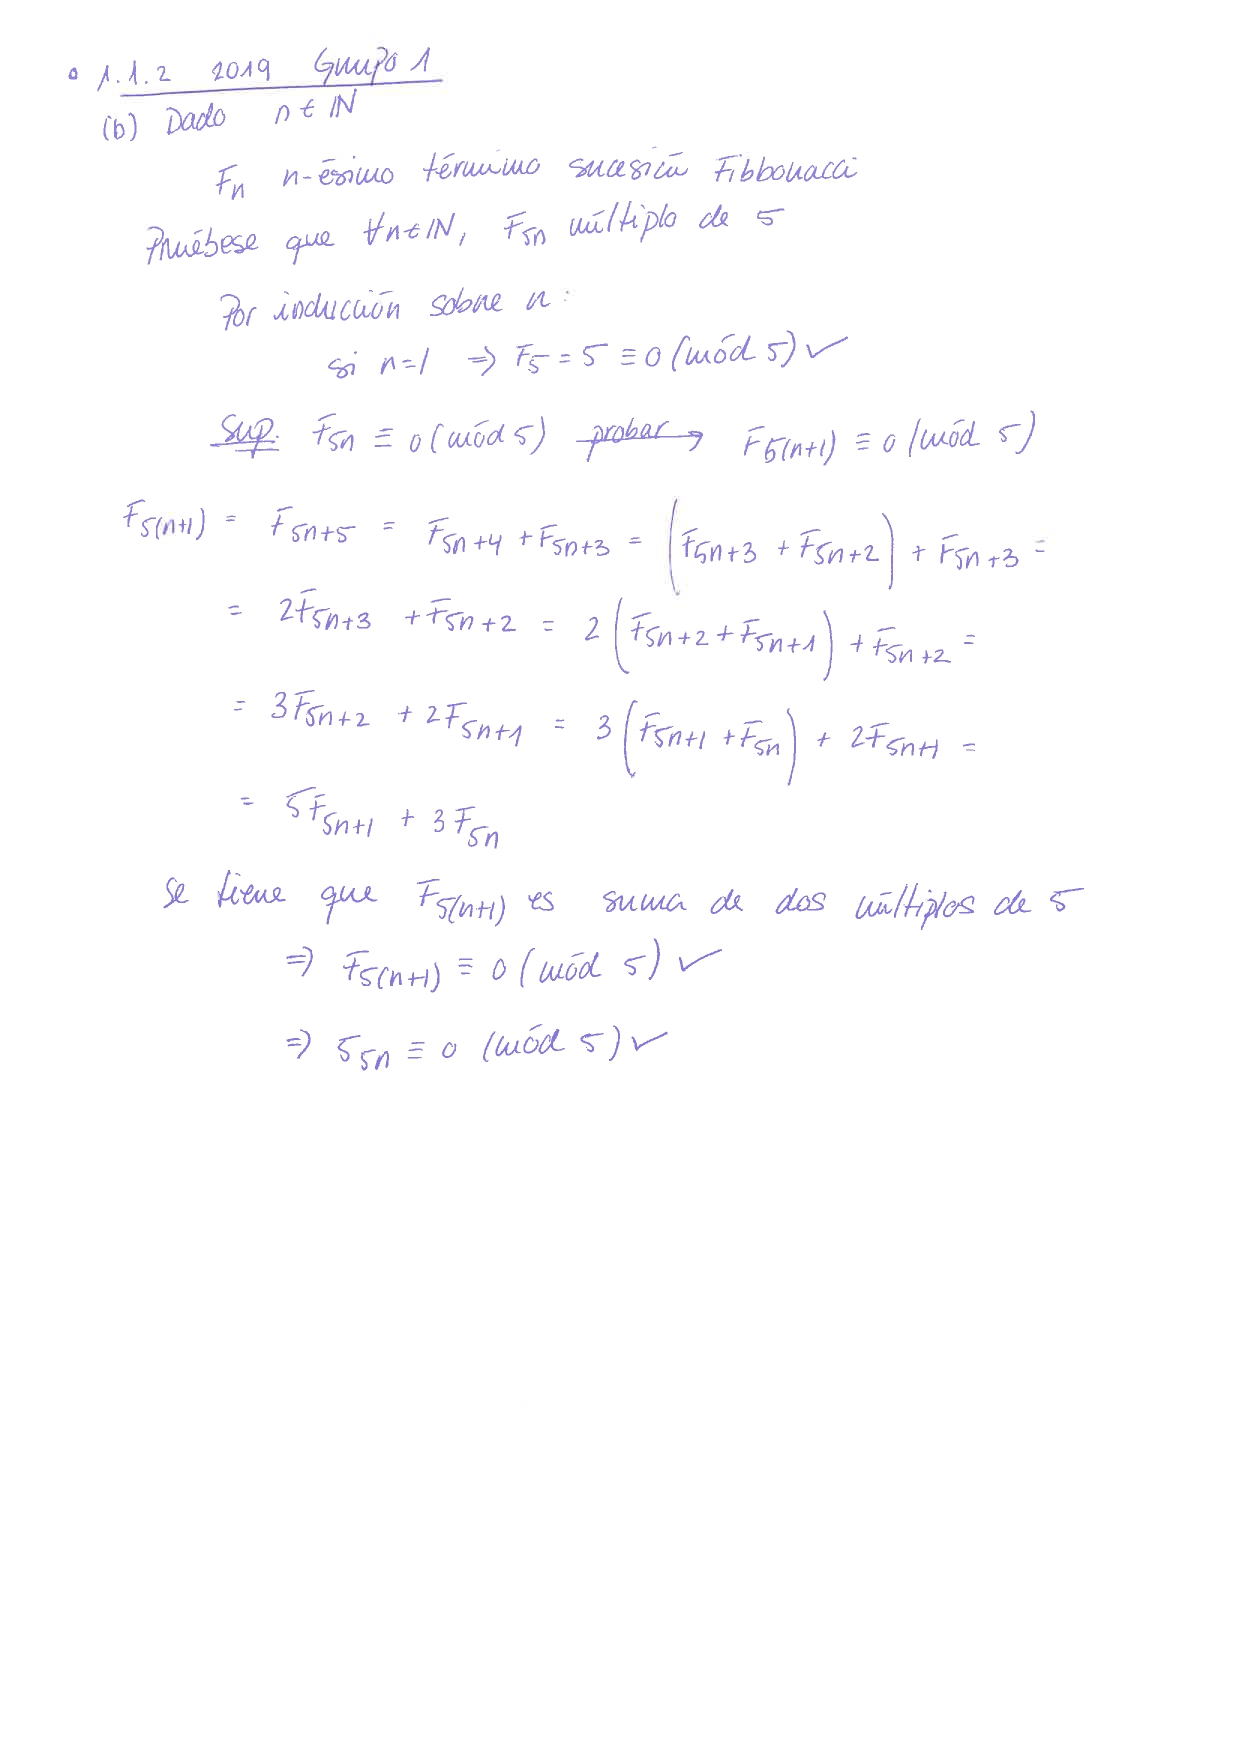 1.1.2 2019 Grupo 1
(b) Dado n ∈ IN
Fn n-ésimo término sucesión Fibbonacci
Pruébese que ∀n∈IN, F5n múltiplo de 5
Por inducción sobre n:
si n=1 ⇒ F5 = 5 ≡ 0 (mód 5) ✓
Sup. F5n ≡ 0 (mód 5) probar → F5(n+1) ≡ 0 (mód 5)
F5(n+1) = F5n+5 = F5n+4 + F5n+3 = (F5n+3 + F5n+2) + F5n+3 =
= 2F5n+3 + F5n+2 = 2(F5n+2 + F5n+1) + F5n+2 =
= 3F5n+2 + 2F5n+1 = 3(F5n+1 + F5n) + 2F5n+1 =
= 5F5n+1 + 3F5n
Se tiene que F5(n+1) es suma de dos múltiplos de 5
⇒ F5(n+1) ≡ 0 (mód 5) ✓
⇒ 55n ≡ 0 (mód 5) ✓